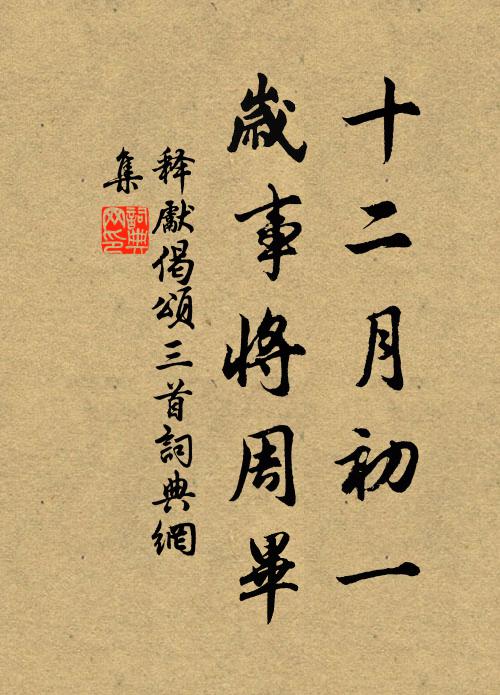 十二月初一
歲事將周畢
释獻偈頌三首詞典網
集
詞典网印